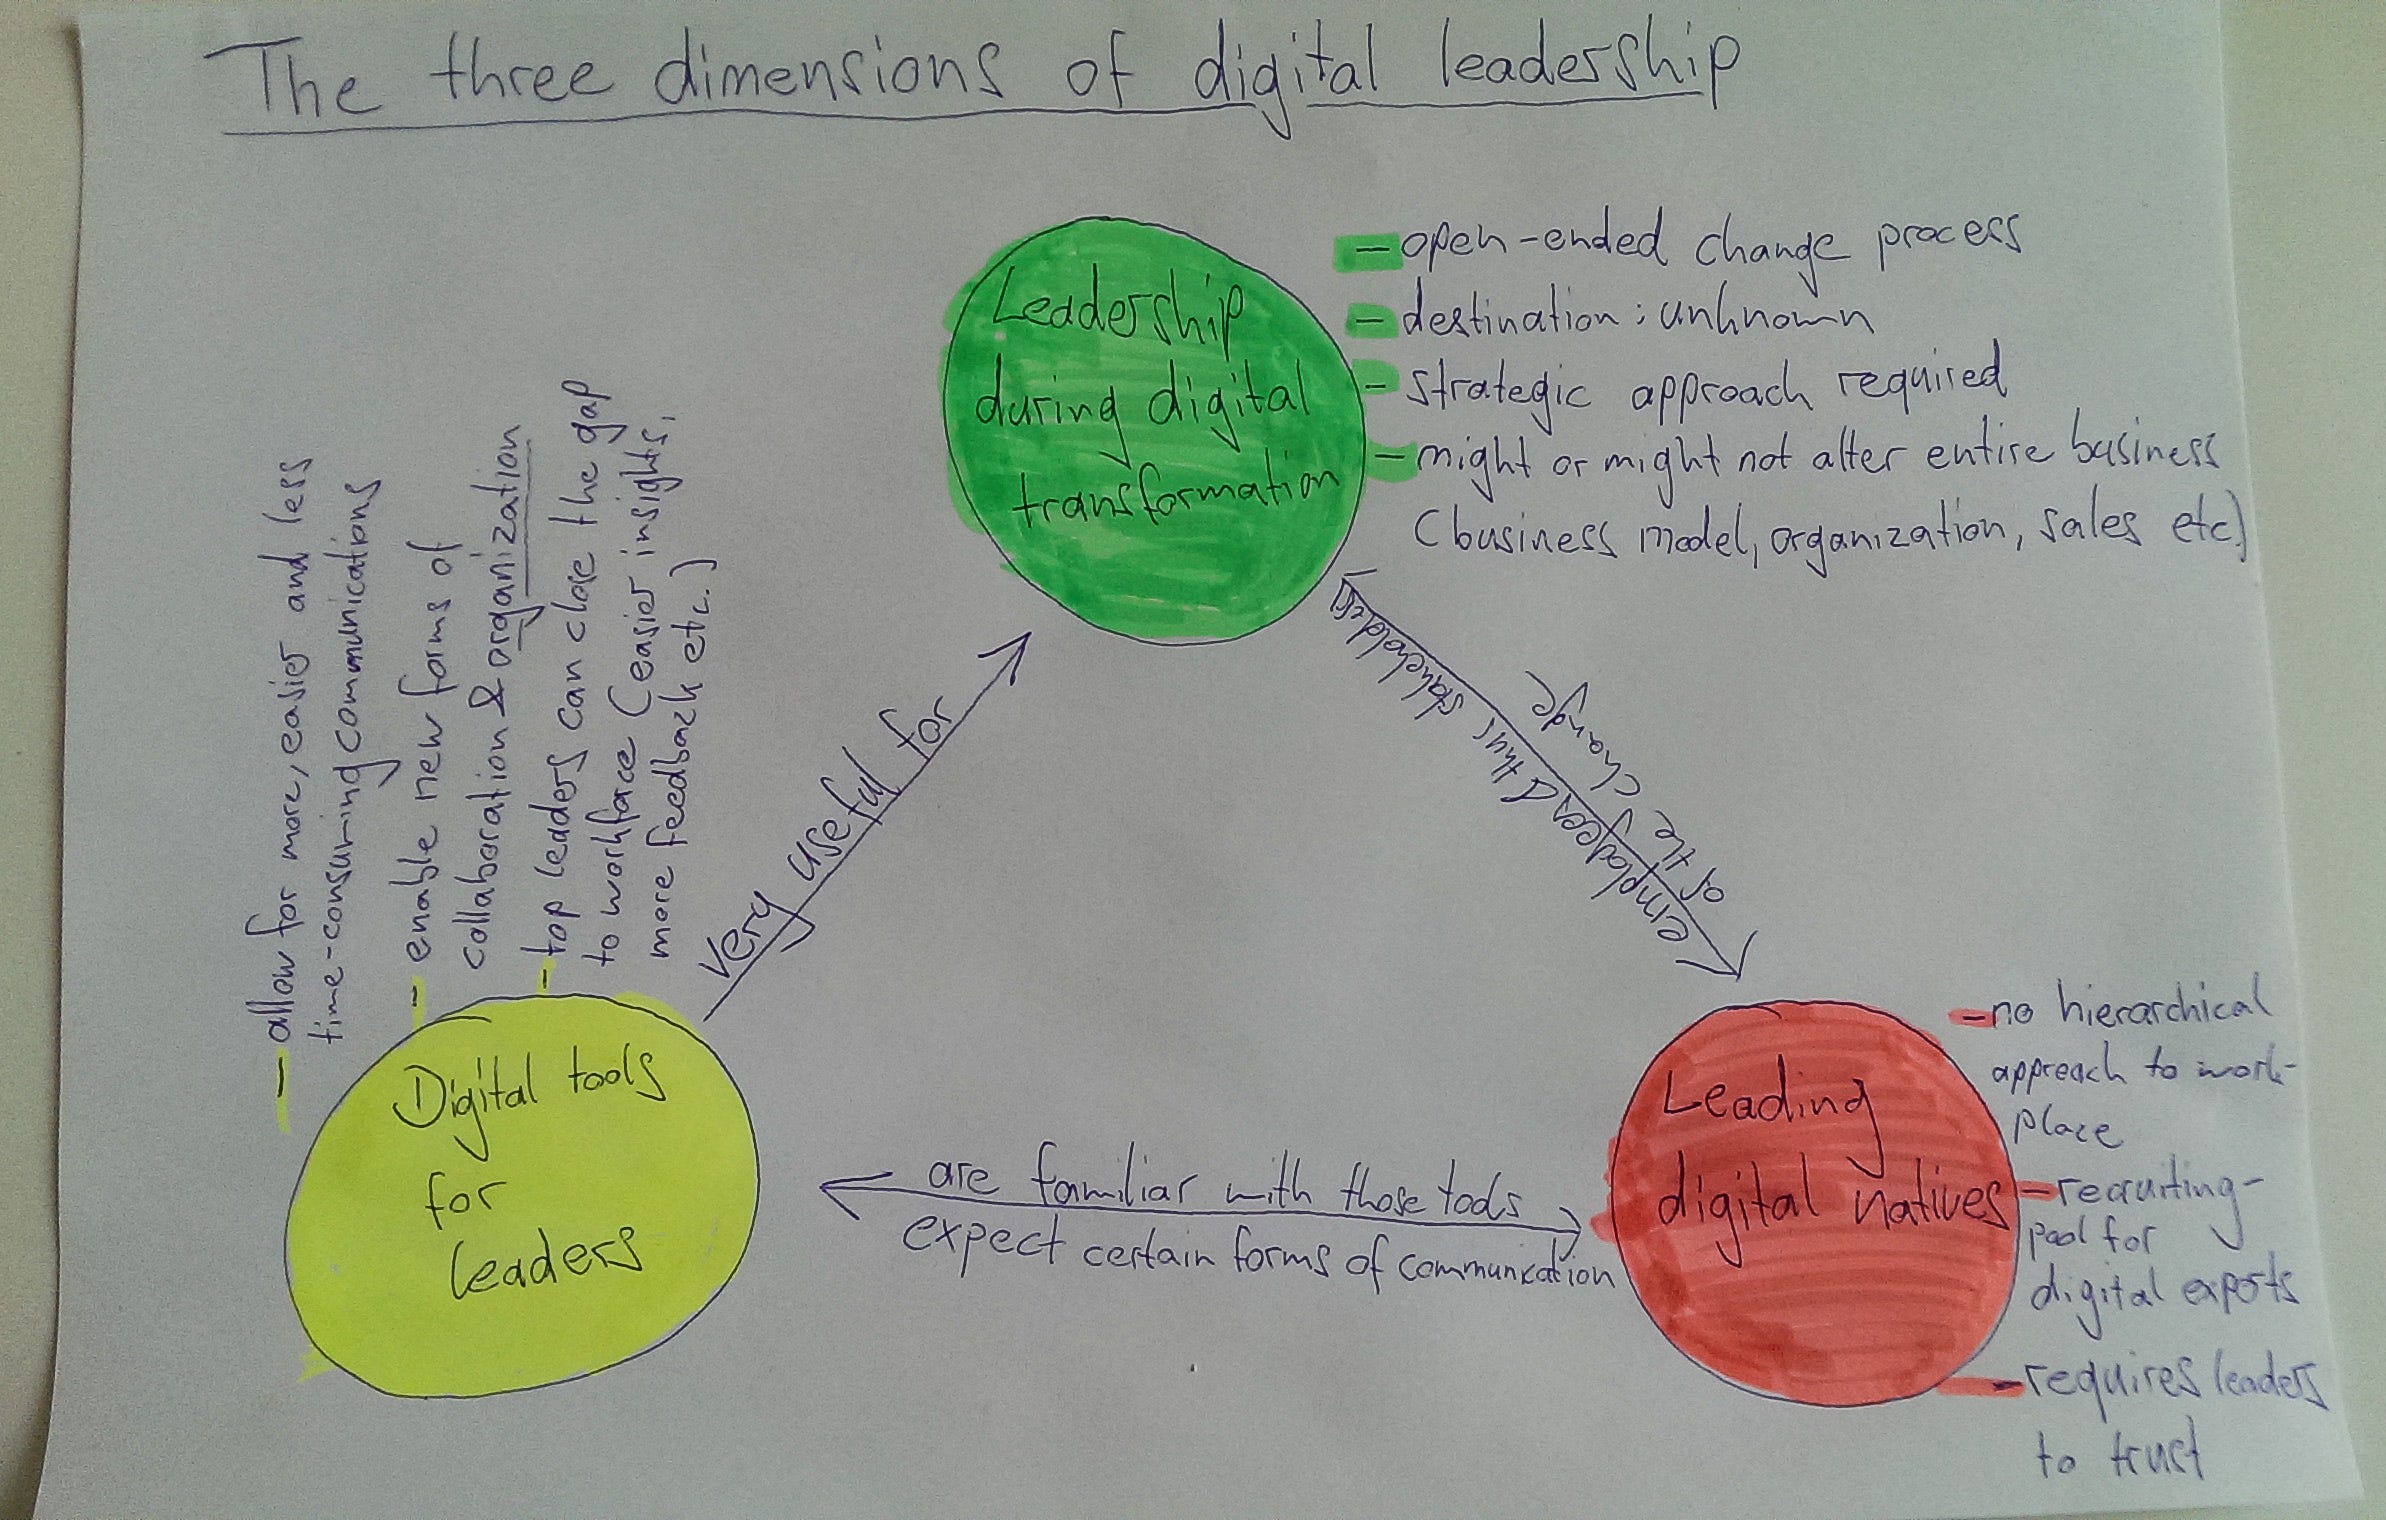 The three dimensions of digital leadership
Leadership
during digital
transformation
- open-ended change process
- destination: unknown
- strategic approach required
- might or might not alter entire business
(business model, organization, sales etc.)
- allow for more, easier and less
time-consuming communications
- enable new forms of
collaboration & organization
- top leaders can close the gap
to workforce (easier insights,
more feedback etc.)
very useful for
employees and thus stakeholders
of the change
Digital tools
for
leaders
are familiar with those tools
expect certain forms of communication
Leading
digital natives
- no hierarchical
approach to work-
place
- recruiting-
pool for
digital experts
- requires leaders
to trust